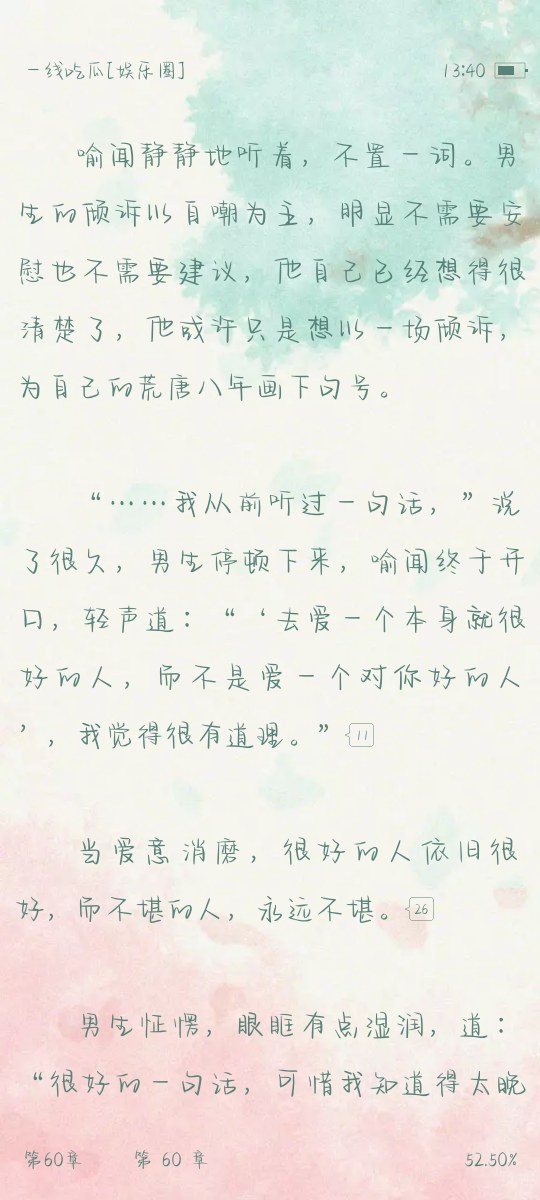 一线吃瓜[娱乐圈]
13:40
喻闻静静地听着，不置一词。男
生的倾诉以自嘲为主，明显不需要安
慰也不需要建议，他自己已经想得很
清楚了，他或许只是想以一场倾诉，
为自己的荒唐八年画下句号。
“……我从前听过一句话，”说
了很久，男生停顿下来，喻闻终于开
口，轻声道：“‘去爱一个本身就很
好的人，而不是爱一个对你好的人
’，我觉得很有道理。” 11
当爱意消磨，很好的人依旧很
好，而不堪的人，永远不堪。 26
男生怔愣，眼眶有点湿润，道：
“很好的一句话，可惜我知道得太晚
第60章 第 60 章 52.50%